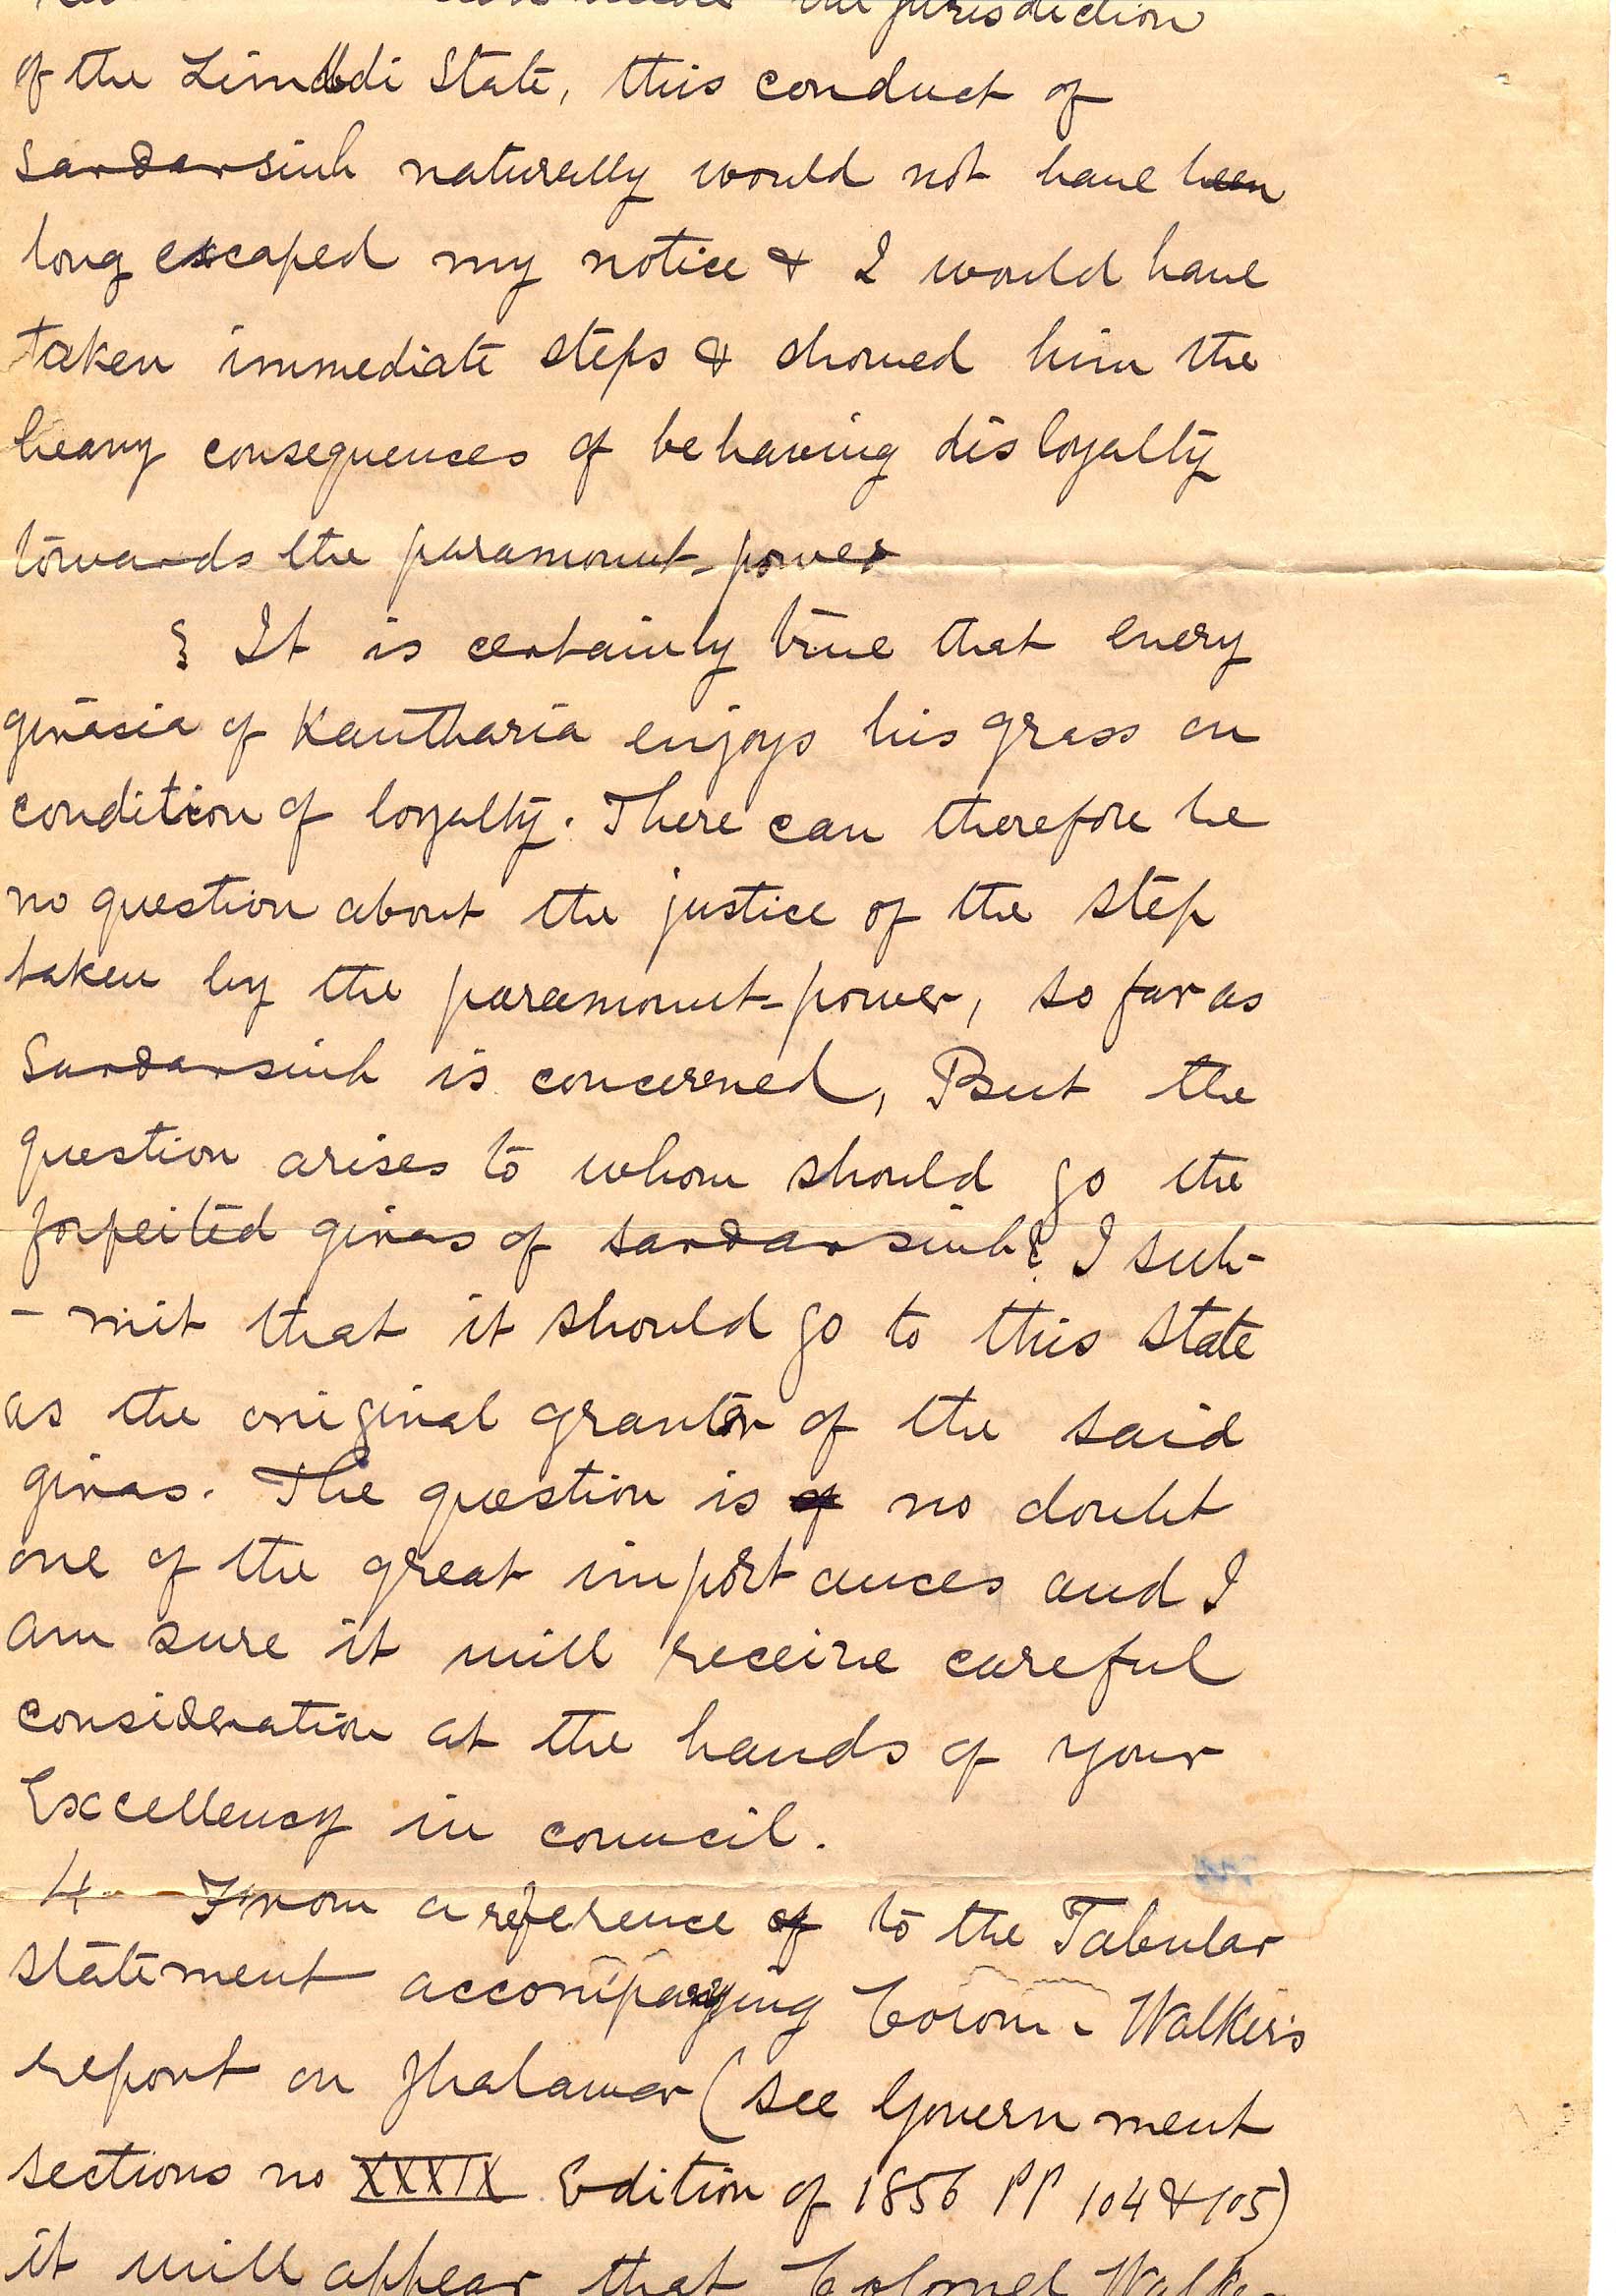 the jurisdiction
of the Limbdi State, this conduct of
Sardarsinh naturally would not have been
long escaped my notice & I would have
taken immediate steps & showed him the
heavy consequences of behaving disloyalty
towards the paramount-power
3 It is certainly true that every
girasia of Kantharia enjoys his grass on
condition of loyalty. There can therefore be
no question about the justice of the step
taken by the paramount-power, so far as
Sardarsinh is concerned, But the
question arises to whom should go the
forfeited giras of Sardarsinh? I sub-
- mit that it should go to this state
as the original grantor of the said
giras. The question is of no doubt
one of the great importances and I
am sure it will receive careful
consideration at the hands of your
Excellency in council.
4 From a reference of to the Tabular
statement accompanying Walker's
report on Jhalawar (see Government
sections no XXXIX Edition of 1856 PP 104 & 105)
it will appear that Colonel Walker